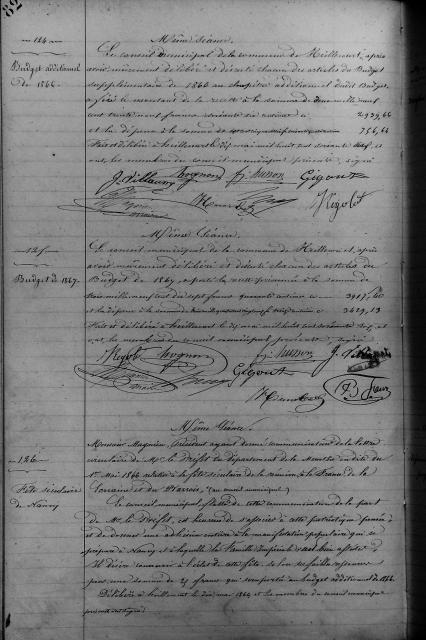 82
124
Même Séance.
Budget additionnel
de 1866.
Le conseil municipal de la commune de Heillecourt, après
avoir mûrement délibéré et discuté chacun des articles du Budget
supplémentaire de 1866 au chapitre additionnel dudit Budget,
a fixé le montant de la recette à la somme de deux mille neuf
cent trente neuf francs soixante six centimes ci 2939,66
et la dépense à la somme de 756,64
Fait et délibéré à heillecourt le dix mai mil huit cent soixante six, et
ont, les membres du conseil municipal présents, signé
J. Villaume Thognon Husson Gigout
Rigolet
Même Séance.
125
Budget de 1867.
Le conseil municipal de la commune de Heillecourt, après
avoir mûrement délibéré et discuté chacun des articles du
Budget de 1867 a porté la recette présumée à la somme de
mille neuf cent dix sept francs quarante centimes ci 3917,40
et la dépense à la somme de 3629,13
Fait et délibéré à heillecourt le dix mai mil huit cent soixante six, et
ont, les membres du conseil municipal présents, signé
Rigolet Thognon Husson J. Villaume
Gigout
Même Séance.
126
Fête séculaire
de Nancy
Monsieur Magnien, Président ayant donné communication de la lettre
circulaire de Mr le Préfet du département de la Meurthe en date du
1er Mai 1866 relative à la fête séculaire de la réunion à la France de la
Lorraine et du Barrois, (au conseil municipal)
Le conseil municipal flatté de cette communication de la part
de Mr le Préfet, est heureux de s'associer à cette patriotique pensée
et de donner une adhésion entière à la manifestation populaire qui se
prépare à Nancy et à laquelle la Famille Impériale doit bien assister.
Il désire concourir à l'éclat de cette fête,
pour une somme de 25 francs qui sera portée au budget additionnel de 1866.
Délibéré à heillecourt le dix mai 1866 et les membres du conseil municipal
présents ont signé